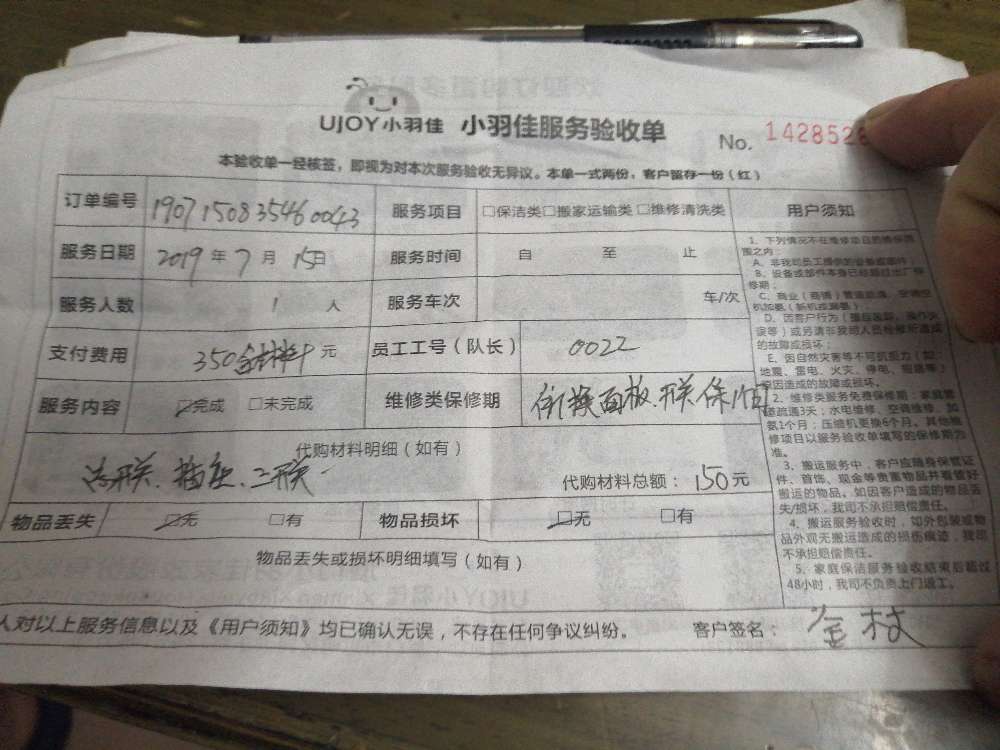 UJOY小羽佳 小羽佳服务验收单
No. 142852
本验收单一经核签，即视为对本次服务验收无异议。本单一式两份，客户留存一份（红）
订单编号 190715083546 0043 服务项目 □保洁类□搬家运输类□维修清洗类 用户须知
服务日期 2019年7月15日 服务时间 自 至 止
服务人数 1 人 服务车次 车/次
支付费用 350 元 员工工号（队长） 0022
服务内容 ☑完成 □未完成 维修类保修期 换面板
代购材料明细（如有）
插座、三联 代购材料总额：150元
物品丢失 ☑无 □有 物品损坏 ☑无 □有
物品丢失或损坏明细填写（如有）
人对以上服务信息以及《用户须知》均已确认无误，不存在任何争议纠纷。 客户签名：金枝
1、下列情况不在维修项目质保范
围之内：
A、非我司员工提供的设备或部件；
B、设备或部件本身已经超过出厂保
修期；
C、商业（商铺）管道疏通、空调空
机加氨（新机或漏氨）
D、因客户行为（擅自拆卸、操作失
误等）或另请非我司人员检修所造成
的故障或损坏；
E、因自然灾害等不可抗拒力（如：
地震、雷电、火灾、停电、短路等）
原因造成的故障或损坏。
2、维修类服务免费保修期：家庭管
道疏通3天；水电维修、空调维修、加
氨1个月；压缩机更换6个月。其他维
修项目以服务验收单填写的保修期为
准。
3、搬运服务中，客户应随身保管证
件、首饰、现金等贵重物品并看管好
搬运的物品。如因客户造成的物品丢
失/损坏，我司不承担赔偿责任。
4、搬运服务验收时，如外包装或物
品外观无搬运造成的损伤痕迹，我司
不承担赔偿责任。
5、家庭保洁服务验收结束后超过
48小时，我司不负责上门返工。